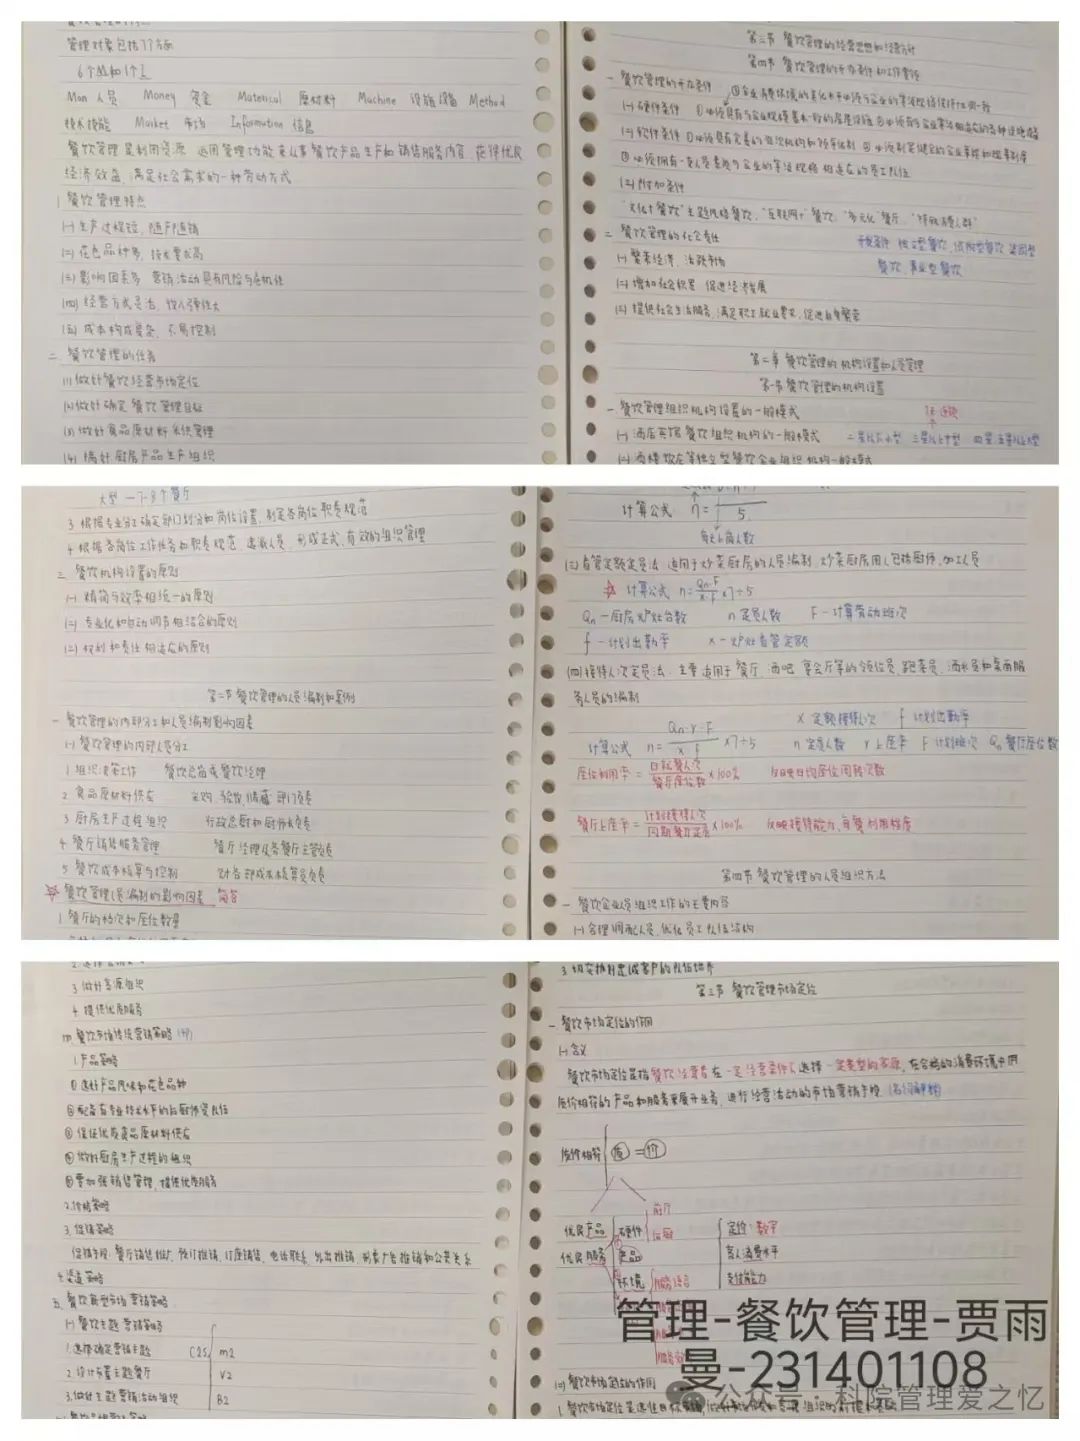 管理对象包括7个方面
6个M和1个I
Man 人员 Money 资金 Material 原材料 Machine 设施设备 Method
技术技能 Market 市场 Information 信息
餐饮管理是利用资源 运用管理功能来从事餐饮产品生产和销售服务内容，获得优良
经济效益，满足社会需求的一种劳动方式
餐饮管理特点
(一)生产过程短，随产随销
(二)花色品种多，技术要求高
(三)影响因素多 营销活动具有风险与危机性
(四)经营方式灵活，收入弹性大
(五)成本构成复杂，不易控制
二、餐饮管理的任务
(1)做好餐饮经营市场定位
(2)做好确定餐饮管理目标
(3)做好食品原材料采供管理
(4)搞好厨房产品生产组织
第三节 餐饮管理的经营思想和经营方针
第四节 餐饮管理的开办条件和工作责任
一 餐饮管理的开办条件
(一)硬件条件
(二)软件条件 ①必须具有完善的组织机构和领导体制 ②必须制定健全的企业章程和规章制度
(三)附加条件
"文化+餐饮"主题风格餐饮，"互联网+"餐饮，"多元化"餐厅，"特殊消费人群"
二 餐饮管理的社会责任
餐饮，事业型餐饮
(一)繁荣经济，活跃市场
(二)增加社会积累 促进经济发展
(三)提供社会生活服务，满足职工就业要求，促进自身繁荣
第二章 餐饮管理的机构设置和人员管理
第一节 餐饮管理的机构设置
一 餐饮管理组织机构设置的一般模式
(一)酒店宾馆餐饮组织机构的一般模式
大型一7-8个餐厅
3 根据专业分工确定部门划分和岗位设置，制定各岗位职责规范
4 根据各岗位工作任务和职责规范 选派人员，形成正式，有效的组织管理
三 餐饮机构设置的原则
(一)精简与效率相统一的原则
(二)专业化和自动调节相结合的原则
(三)权利和责任相适应的原则
第二节 餐饮管理的人员编制和案例
一 餐饮管理的内部分工和人员编制影响因素
(一)餐饮管理的内部人员分工
1 组织决策工作 餐饮总监或餐饮经理
2 食品原材料供应 采购、验收、储藏部门负责
3 厨房生产过程组织 行政总厨和厨师长负责
4 餐厅销售服务管理 餐厅经理及各餐厅主管负责
5 餐饮成本核算与控制 财务部成本核算员负责
餐饮管理人员编制的影响因素 简答
1 餐厅的档次和座位数量
计算公式 n= 5
每天上岗人数
(三)看管定额定员法 适用于炒菜厨房的人员编制，炒菜厨房用人包括厨师，加工人员
☆ 计算公式 n=Qn·F/x·f×7÷5
Qn—厨房炉灶台数 n 定员人数 F—计算劳动班次
f—计划出勤率 x—炉灶看管定额
(四)接待人次定员法 主要适用于餐厅，酒吧，宴会厅等的领位员，跑菜员，酒水员和桌面服
务人员的编制
x 定额接待人次 f 计划出勤率
计算公式 n=Qn·r·F/x·f×7÷5 n 定员人数 r 上座率 F 计划班次 Qn 餐厅座位数
座位利用率=日就餐人次/餐厅座位数×100% 反映日均座位周转次数
餐厅上座率=计划接待人次/同期餐厅定员×100% 反映接待能力，每餐利用程度
第四节 餐饮管理的人员组织方法
一 餐饮企业人员组织工作的主要内容
(一)合理调配人员，优化员工队伍结构
3 做好客源组织
4 提供优质服务
四、餐饮市场传统营销策略(4P)
1.产品策略
①选好产品风味和花色品种
②配备有专业技术水平的后厨师资队伍
③保证优质食品原材料供应
④做好厨房生产过程的组织
⑤要加强销售管理，提供优质服务
2.价格策略
3.促销策略
促销手段：餐厅销售推广，预订推销，订座销售，电话联系，外出推销，刊登广告推销和公共关系
4.渠道策略
五、餐饮新型市场营销策略
(一)餐饮主题营销策略
1.选择确定营销主题
2 设计布置主题餐厅
3.做好主题营销活动组织
第三节 餐饮管理市场定位
一 餐饮市场定位的作用
(一)含义
餐饮市场定位是指餐饮经营者在一定经营条件下，选择一定类型的客源，在合格的消费环境中用
质价相符的产品和服务来展开业务，进行经营活动的市场营销手段 (名词解释)
质价相符 质=价
优质产品 硬件 前厅 后厨 定价：数字
优质服务 产品 客人消费水平
环境 服务语言 支付能力
(二)餐饮市场定位的作用
管理-餐饮管理-贾雨
曼-231401108
公众号·科院管理爱之忆